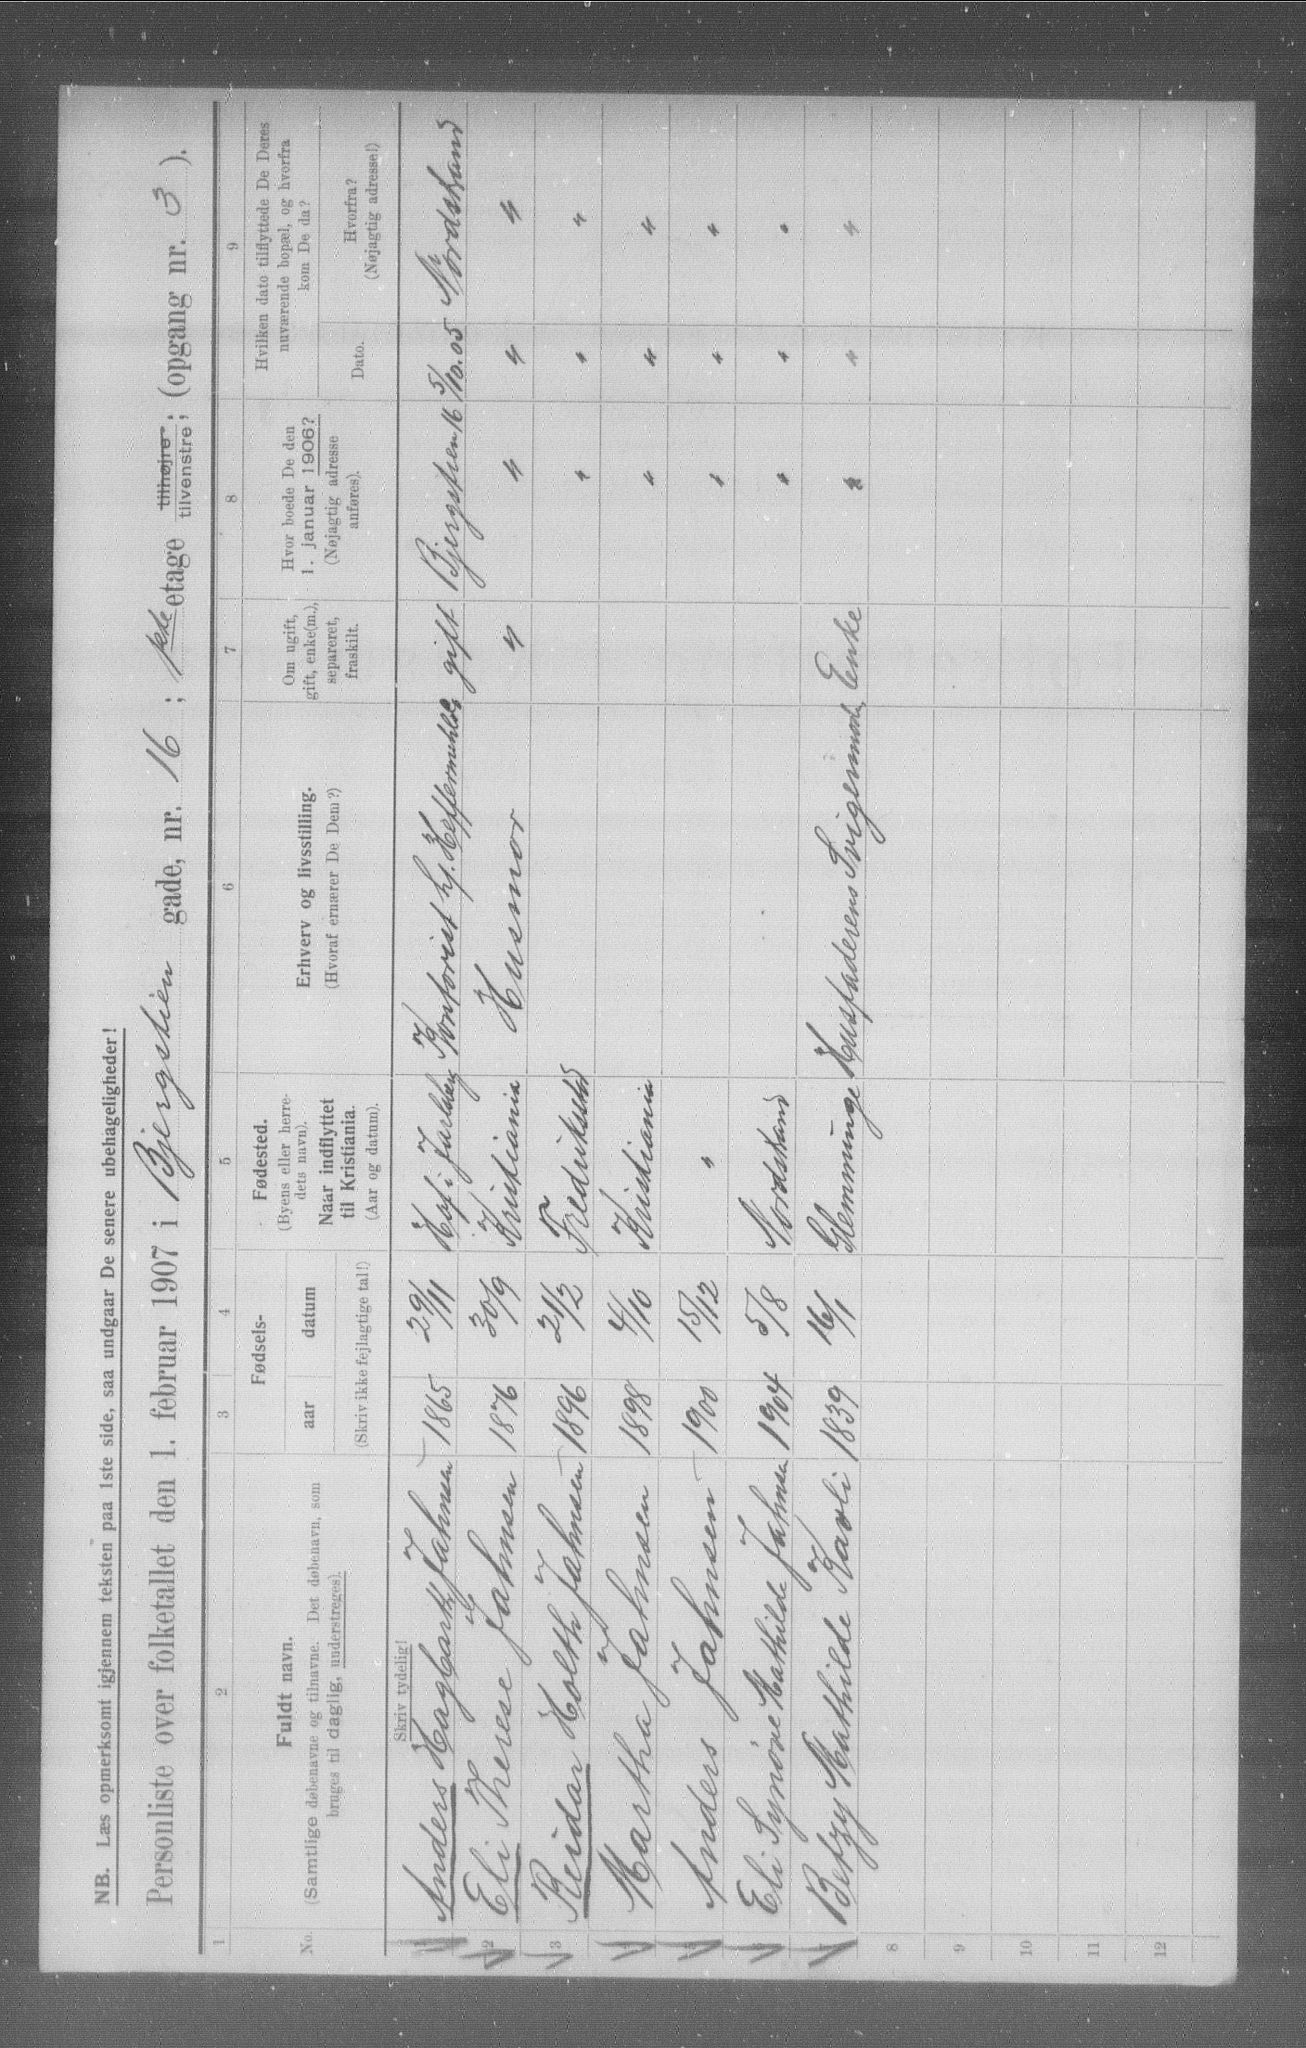 NB. Læs opmerksomt igjennem teksten paa 1ste side, saa undgaar De senere ubehageligheder!
Personliste over folketallet den 1. februar 1907 i Bjergstien gade, nr. 16 ; 1ste etage tilhøjre tilvenstre ; (opgang nr. 3 ).
1 2 3 4 5 6 7 8 9
No.
Fuldt navn.
(Samtlige døbenavne og tilnavne. Det døbenavn, som
bruges til daglig, understreges).
Fødsels-
aar datum
(Skriv ikke fejlagtige tal!)
Fødested.
(Byens eller herre-
dets navn).
Naar indflyttet
til Kristiania.
(Aar og datum).
Erhverv og livsstilling.
(Hvoraf ernærer De Dem?)
Om ugift,
gift, enke(m.),
separeret,
fraskilt.
Hvor boede De den
1. januar 1906?
(Nøjagtig adresse
anføres).
Hvilken dato tilflyttede De Deres
nuværende bopæl, og hvorfra
kom De da?
Dato.
Hvorfra?
(Nøjagtig adresse!)
Skriv tydelig!
1 Anders Hagbarth Jahnsen 1865 29/11 Hof i Jarlsberg Kontorist hj. gift Bjergstien 16 5/10.05 Nordstrand
2 Eli Therese Jahnsen 1876 30/9 Kristiania Husmor " " " "
3 Reidar Holth Jahnsen 1896 21/2 Fredrikstad " " "
4 Martha Jahnsen 1898 4/10 Kristiania " " "
5 Anders Jahnsen 1900 15/12 " " " "
6 Eli Synöve Mathilde Jahnsen 1904 5/8 Nordstrand " " "
7 Betzy Mathilde 1839 16/1 Glemminge Husfaderens Svigermoder Enke " " "
8
9
10
11
12